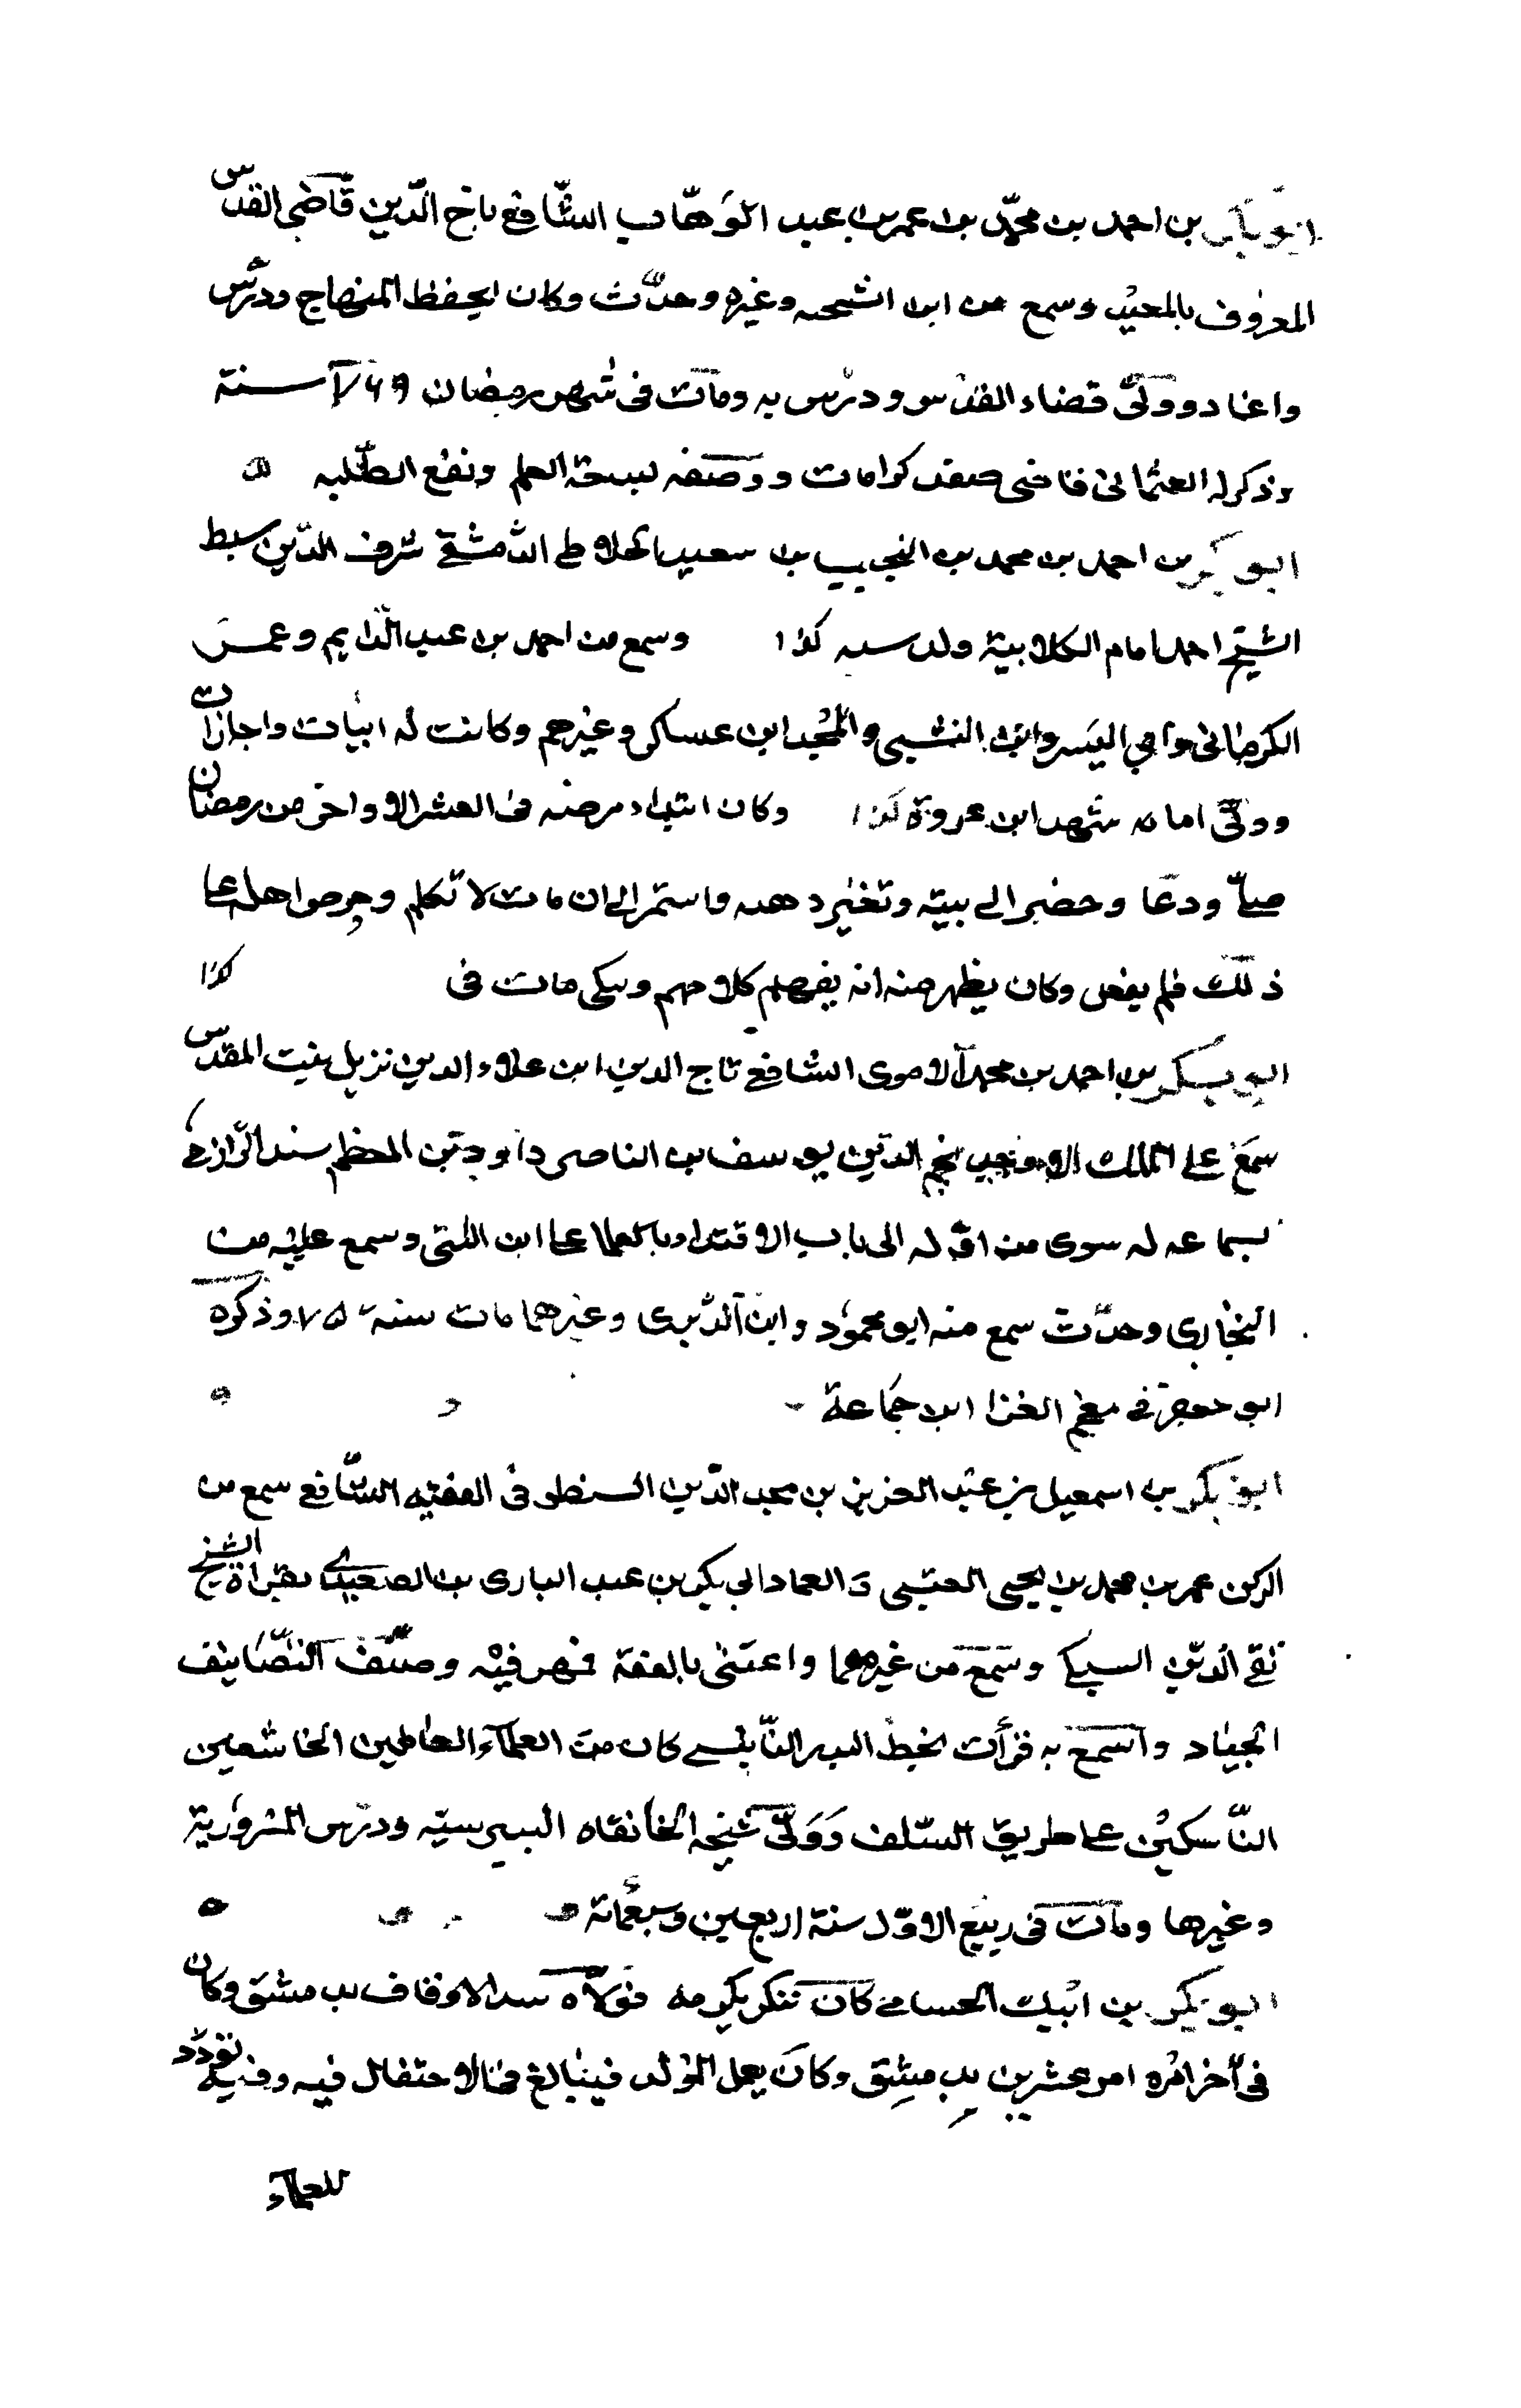 ابو بكر بن احمد بن محمّد بن عمر بن عبد الوَهّاب الشّافع تاج الدّين قاضى القدس
المعروف بالمعيد وسمع من ابن الشحنه وغيره وحدّث وكان يحفظ المنهاج ودرّس
واعاد وولّى قضاء القدس ودرّس به ومات فى شهر رمضان ٧٦٩ سنة
وذكر له العثمانى قاضى صفد كرامات ووصفه لسعة العلم ونفع الطّلبه ۵
ابو بكر بن احمد بن محمد بن النجيب بن سعيد الخلاطى الدّمشقى شرف الدّين سبط
الشيخ احمد امام الكلابية ولد سنه كذا وسمع من احمد بن عبد الدّايم وعمر
الكرمانى وابي اليسر وابن النشبى والمجد ابن عساكر وغيرهم وكانت له اثبات واجازات
وولّى امامه مشهد ابن عروة كذا وكان ابتداء مرضه فى العشر الاواخر من رمضان
صلّى ودعا وحضر الى بيته وتغيّر ذهنه واستمر الى ان مات لا تكلم وحرص اهله على
ذلك فلم يفعل وكان يظهر منه انه يفهم كلامهم ويبكى مات فى كذا
ابو بكر بن احمد بن محمد الاموى الشافع تاج الدين ابن علاء الدين نزيل بيت المقدس
سمع على الملك الاوحد نجم الدّين يوسف بن الناصر داود بن المعظم مسند الدّارمى
بسماعه له سوى من اوّله الى باب الاقتداء بالعلماء على ابن اللتى وسمع عليه من
البخارى وحدّث سمع منه ابو محمود وابن الدّيرى وغيرهما مات سنة ٧٥ وذكره
ابو جعفر فى معجم العز ابن جماعة
ابو بكر بن اسمعيل بن عبد العزيز بن مجد الدّين السنطونى الفقيه الشّافع سمع من
الركن عمر بن محمد بن يحيى العتبى والعماد ابي بكر بن عبد البارى بن الصعيدى بقراة الشيخ
تقى الدّين السبكى وسمع من غيرهما واعتنى بالفقه فمهر فيه وصنّف التّصانيف
الجياد واسمع به قرأت بخط البدر النّابلسى كان من العلماء العاملين الخاشعين
النّاسكين على طريق السّلف وَوَلّى مشيخه الخانقاه البيبرسيّه ودرّس المسرورية
وغيرها ومات فى ربيع الاوّل سنة اربعين وسبعمائة
ابو بكر بن ايبك الحسامى كان تنكز يكرمه فولّاه شد الاوقاف بدمشق وكان
فى آخر امره امر عشرين بدمشق وكان يعمل المولد فيبالغ فى الاحتفال فيه وفيه تودّد
للعلماء